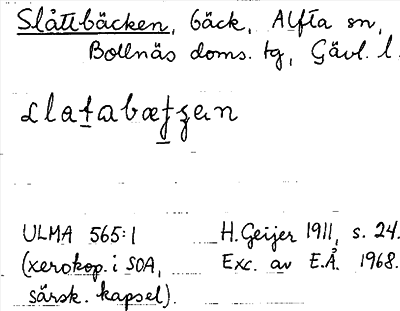 Slåttbäcken, bäck, Alfta sn,
Bollnäs doms. tg, Gävl. l.
ULMA 565:1
(xerokop. i SOA,
särsk. kapsel).
H. Geijer 1911, s. 24.
Exc. av E.Å. 1968.